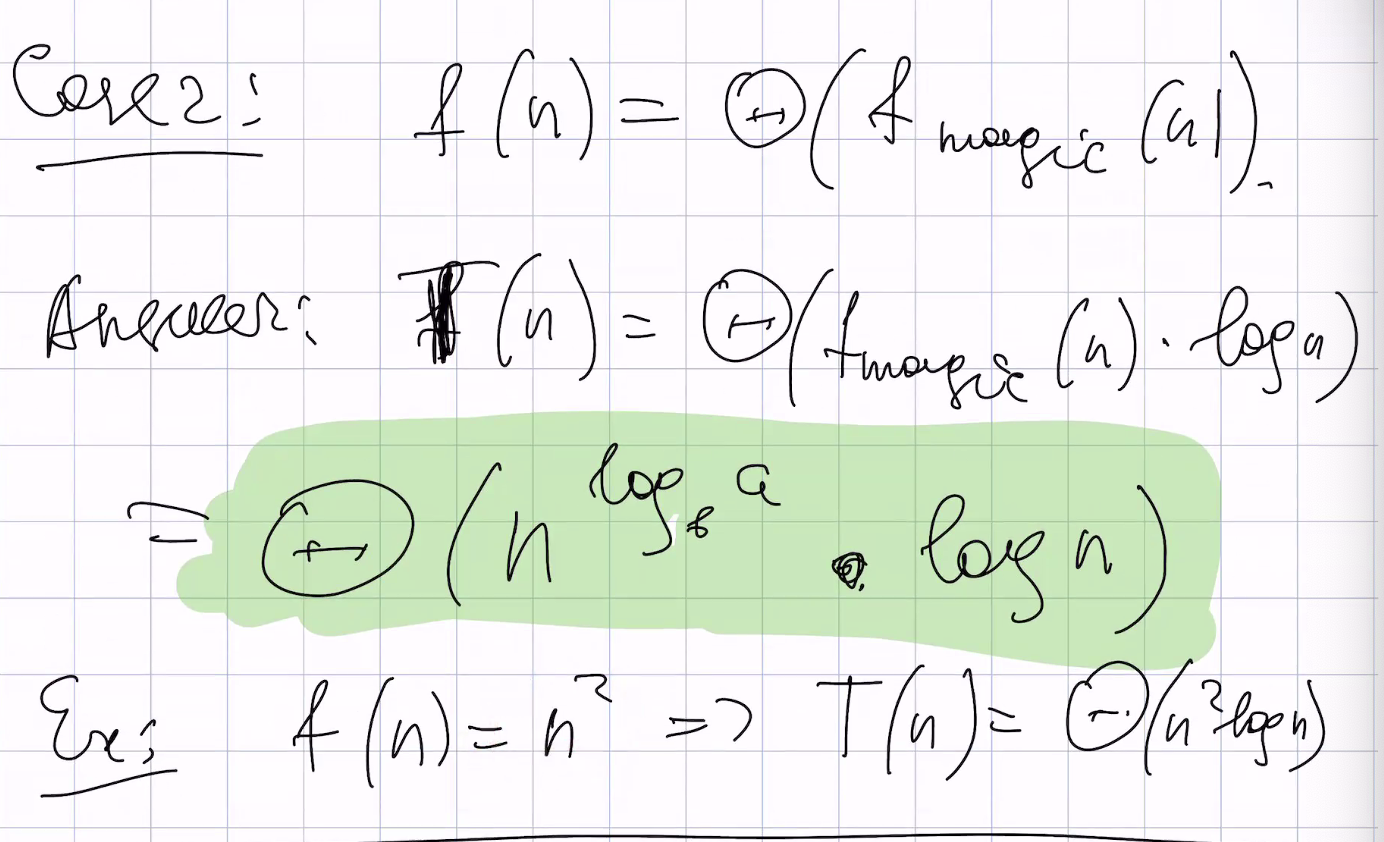 Case 2: f(n) = Θ(f_magic(n)).
Answer: T(n) = Θ(f_magic(n) · log n)
= Θ(n^{log_b a} · log n)
Ex: f(n) = n² => T(n) = Θ(n² log n)